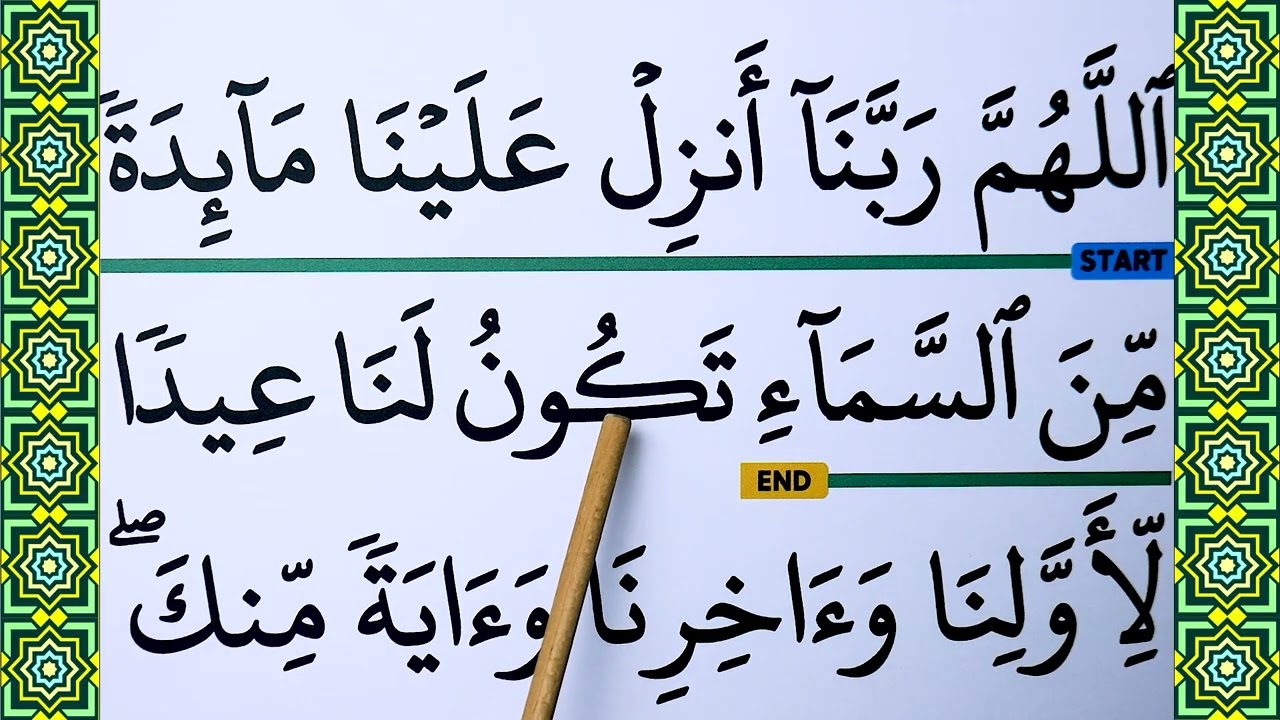 ٱللَّهُمَّ رَبَّنَآ أَنزِلۡ عَلَيۡنَا مَآئِدَةٗ
START
مِّنَ ٱلسَّمَآءِ تَكُونُ لَنَا عِيدٗا
END
لِّأَوَّلِنَا وَءَاخِرِنَا وَءَايَةٗ مِّنكَۖ